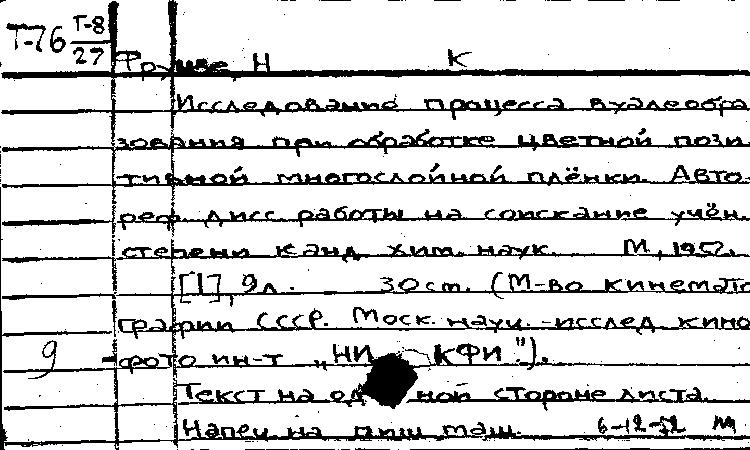 Т-76 Т-8/27
Фрумве, Н К
Исследование процесса вуалеобра
зования при обработке цветной пози
тивной многослойной плёнки. Авто-
реф. дисс. работы на соискание учён.
степени канд. хим. наук. М, 1952.
[1], 9 л. 30 cm. (М-во кинемато
графии СССР. Моск. науч.-исслед. кино
9 фото ин-т „НИКФИ").
Текст на одной стороне листа.
Напеч. на пиш. маш. 6-12-52 М